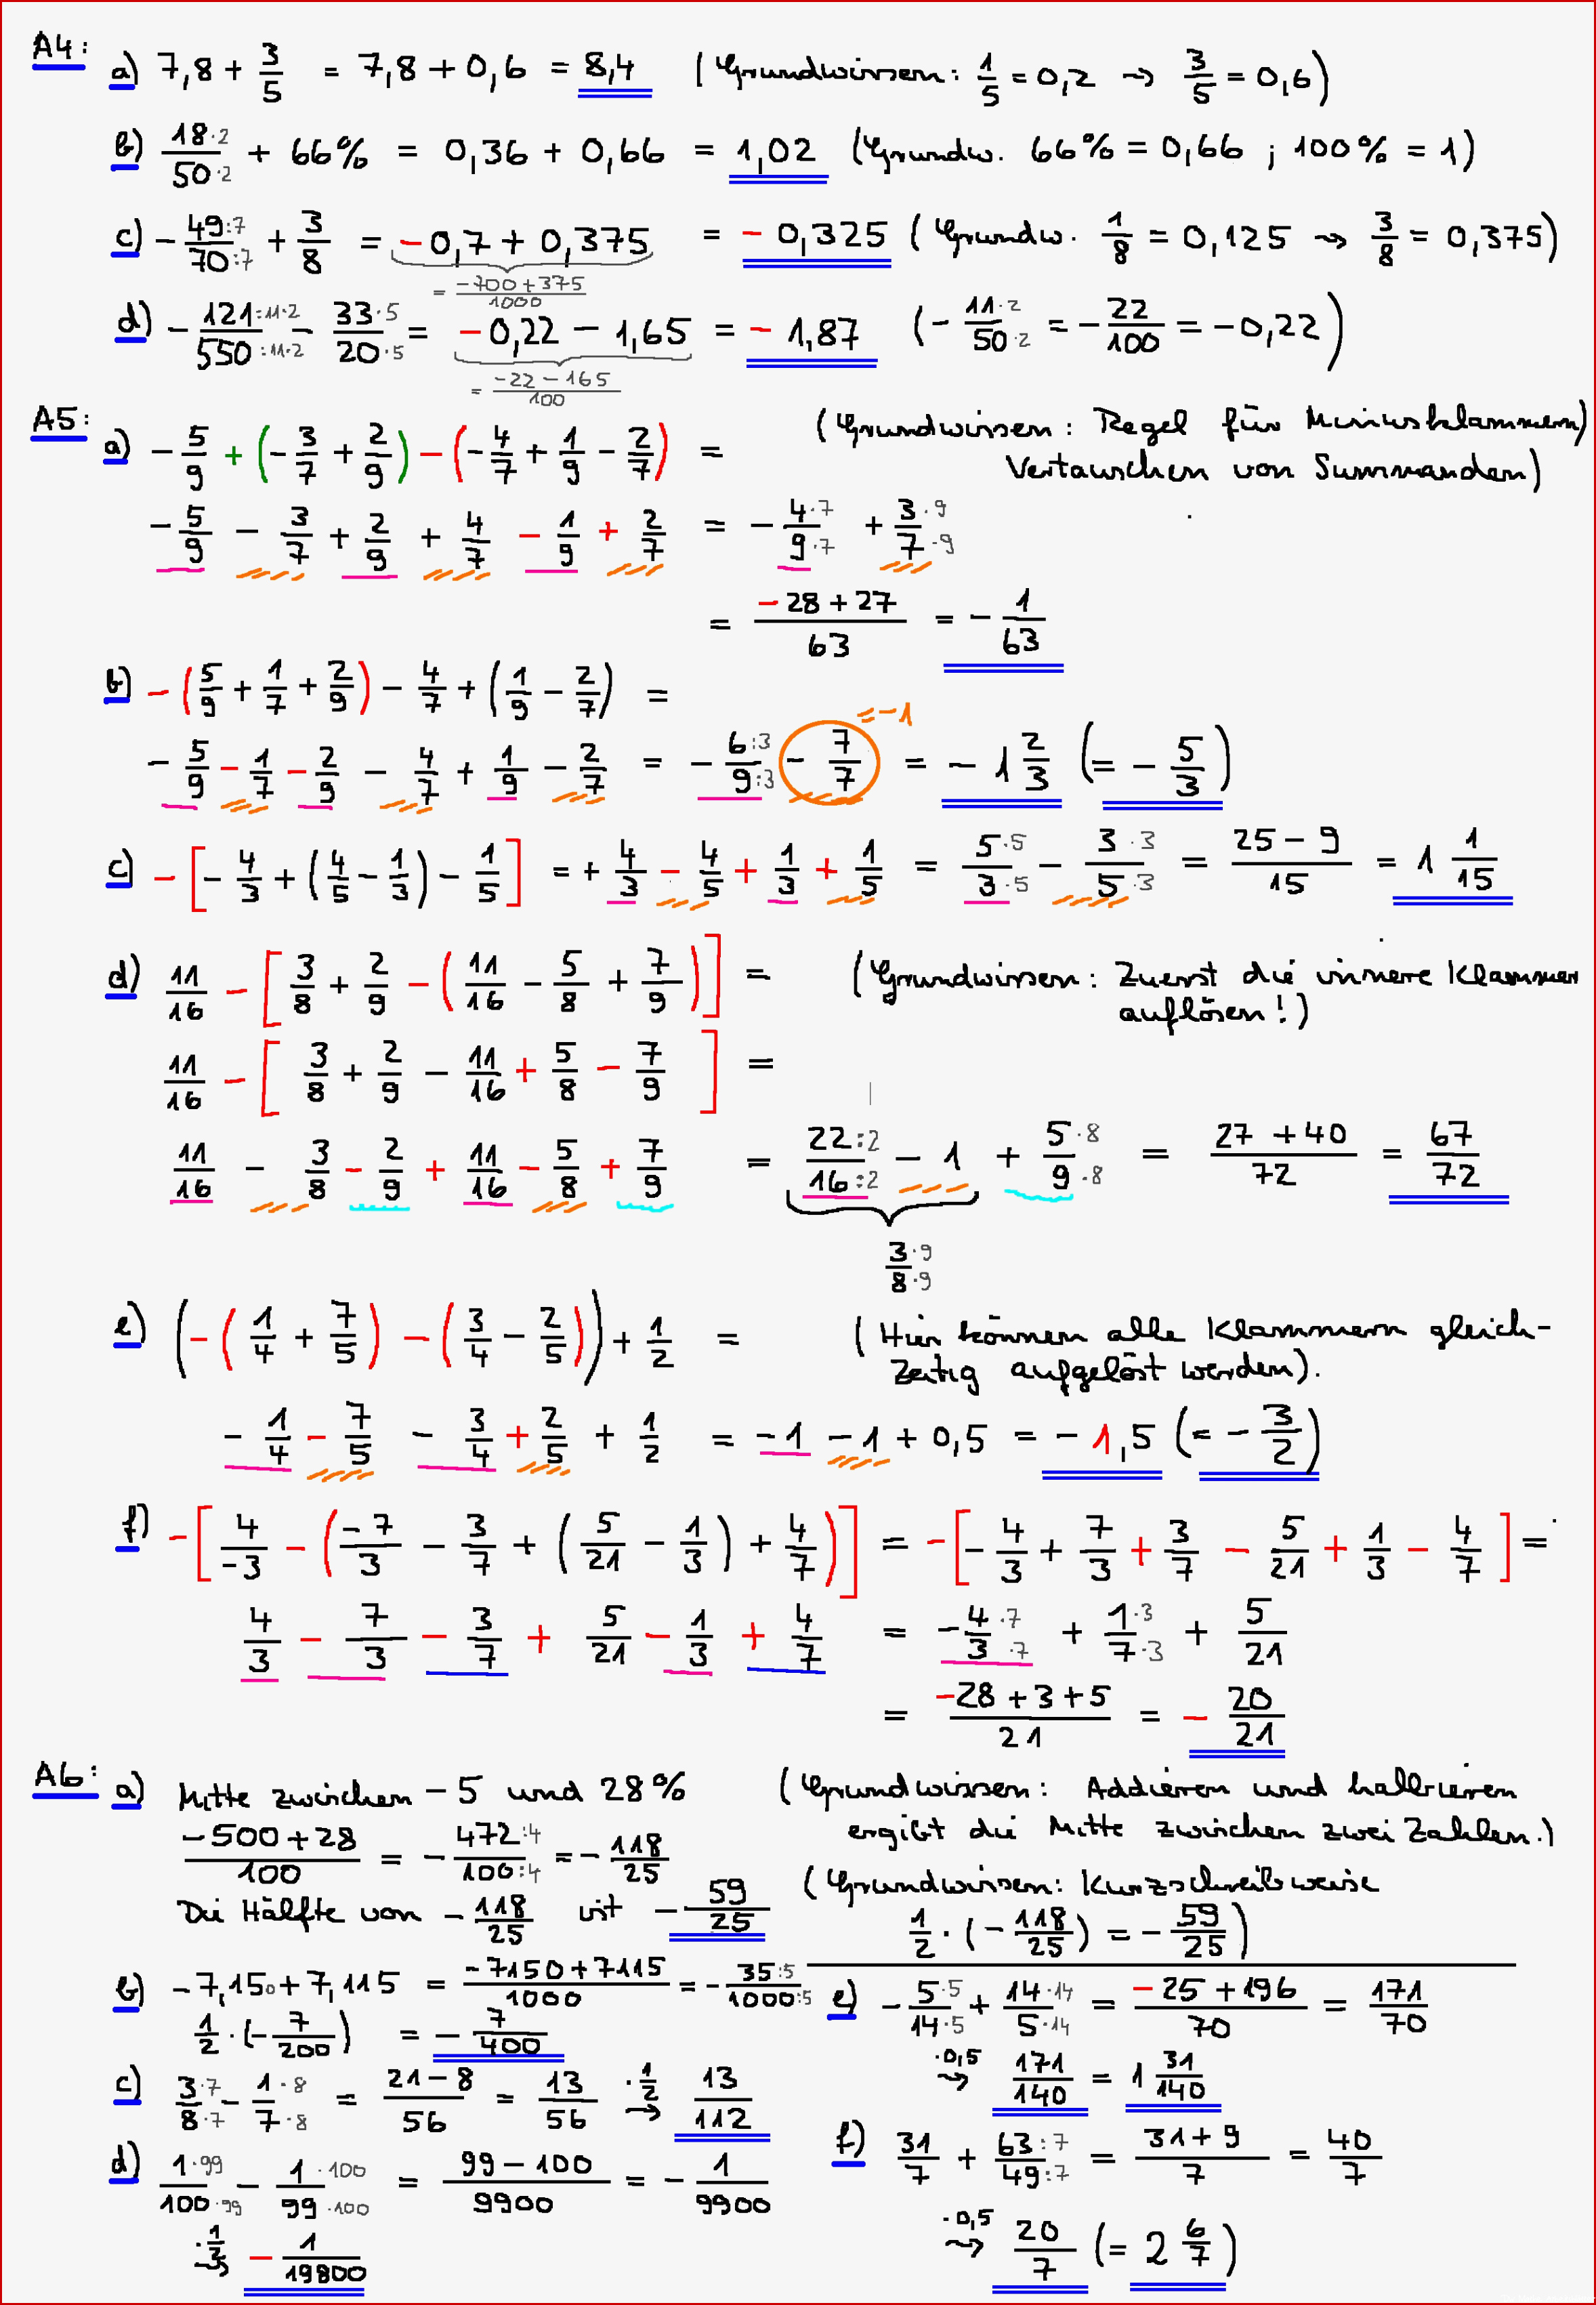 A4: a) 7,8 + 3/5 = 7,8 + 0,6 = 8,4 (Grundwissen: 1/5 = 0,2 → 3/5 = 0,6)
b) 18·2/50·2 + 66% = 0,36 + 0,66 = 1,02 (Grundw. 66% = 0,66 ; 100% = 1)
c) - 49:7/70:7 + 3/8 = -0,7 + 0,375 = -0,325 (Grundw. 1/8 = 0,125 → 3/8 = 0,375)
= -700+375/1000
d) - 121:11·2/550:11·2 - 33·5/20·5 = -0,22 - 1,65 = -1,87 (- 11·2/50·2 = - 22/100 = -0,22)
= -22-165/100
A5: a) - 5/9 + (- 3/7 + 2/9) - (- 4/7 + 1/9 - 2/7) = (Grundwissen: Regel für Minusklammern)
Vertauschen von Summanden)
- 5/9 - 3/7 + 2/9 + 4/7 - 1/9 + 2/7 = - 4·7/9·7 + 3·9/7·9
= -28+27/63 = - 1/63
b) - (5/9 + 1/7 + 2/9) - 4/7 + (1/9 - 2/7) =
= -1
- 5/9 - 1/7 - 2/9 - 4/7 + 1/9 - 2/7 = - 6:3/9:3 - 7/7 = - 1 2/3 (= - 5/3)
c) - [- 4/3 + (4/5 - 1/3) - 1/5] = + 4/3 - 4/5 + 1/3 + 1/5 = 5·5/3·5 - 3·3/5·3 = 25-9/15 = 1 1/15
d) 11/16 - [3/8 + 2/9 - (11/16 - 5/8 + 7/9)] = (Grundwissen: Zuerst die innere Klammer
auflösen!)
11/16 - [3/8 + 2/9 - 11/16 + 5/8 - 7/9] =
11/16 - 3/8 - 2/9 + 11/16 - 5/8 + 7/9 = 22:2/16:2 - 1 + 5·8/9·8 = 27+40/72 = 67/72
3·9/8·9
e) (- (1/4 + 7/5) - (3/4 - 2/5)) + 1/2 = (Hier können alle Klammern gleich-
zeitig aufgelöst werden).
- 1/4 - 7/5 - 3/4 + 2/5 + 1/2 = -1 -1 + 0,5 = -1,5 (= - 3/2)
f) - [4/-3 - (-7/3 - 3/7 + (5/21 - 1/3) + 4/7)] = - [- 4/3 + 7/3 + 3/7 - 5/21 + 1/3 - 4/7] =
4/3 - 7/3 - 3/7 + 5/21 - 1/3 + 4/7 = - 4·7/3·7 + 1·3/7·3 + 5/21
= -28+3+5/21 = - 20/21
A6: a) Mitte zwischen -5 und 28% (Grundwissen: Addieren und halbieren
ergibt die Mitte zwischen zwei Zahlen.)
-500+28/100 = - 472:4/100:4 = - 118/25
(Grundwissen: Kurzschreibweise
Die Hälfte von - 118/25 ist - 59/25
1/2 · (- 118/25) = - 59/25)
b) -7,150 + 7,115 = -7150+7115/1000 = - 35:5/1000:5
1/2 · (- 7/200) = - 7/400
c) 3·7/8·7 - 1·8/7·8 = 21-8/56 = 13/56 ·1/2 → 13/112
d) 1·99/100·99 - 1·100/99·100 = 99-100/9900 = - 1/9900
·1/2 → - 1/19800
e) - 5·5/14·5 + 14·14/5·14 = -25+196/70 = 171/70
·0,5 → 171/140 = 1 31/140
f) 31/7 + 63:7/49:7 = 31+9/7 = 40/7
·0,5 → 20/7 (= 2 6/7)